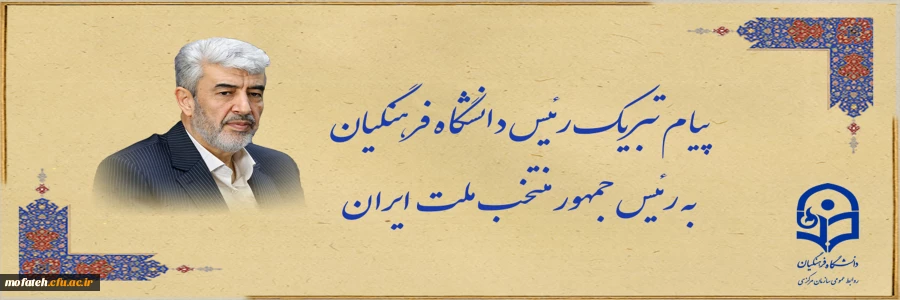 پیام تبریک رئیس دانشگاه فرهنگیان
به رئیس جمهور منتخب ملت ایران
دانشگاه فرهنگیان
روابط عمومی سازمان مرکزی
mofateh.cfu.ac.ir